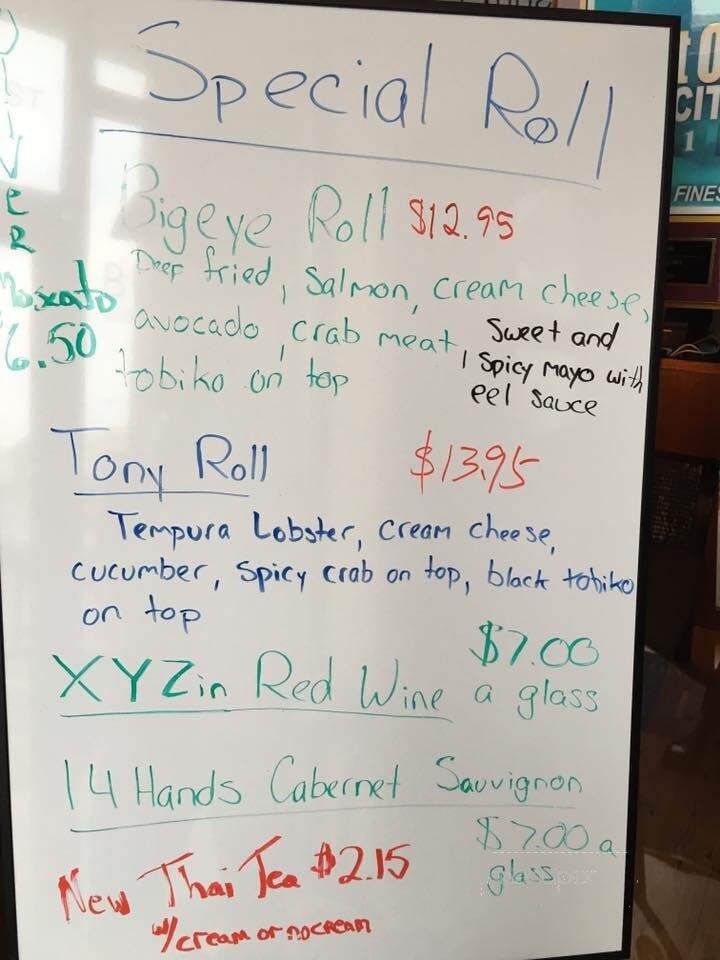 Special Roll
Bigeye Roll $12.95
Deep fried, Salmon, cream cheese,
avocado, crab meat,
tobiko on top
Sweet and
Spicy mayo with
eel sauce
OLIVER
Moscato
6.50
Tony Roll $13.95
Tempura Lobster, cream cheese,
cucumber, spicy crab on top, black tobiko
on top
XYZin Red Wine $7.00
a glass
14 Hands Cabernet Sauvignon
$7.00 a
glass
New Thai Tea $2.15
w/cream or no cream
CIT
1
FINES